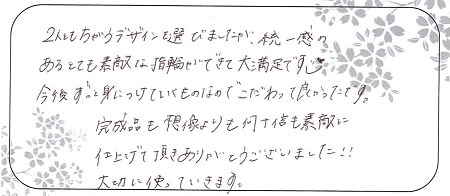 2人ともちがうデザインを選びましたが、統一感の
あるとても素敵な指輪ができて大満足です。
今後ずっと身につけていくものなのでこだわって良かったです。
完成品も想像よりも何十倍も素敵に
仕上げて頂きありがとうございました!!
大切に使っていきます。